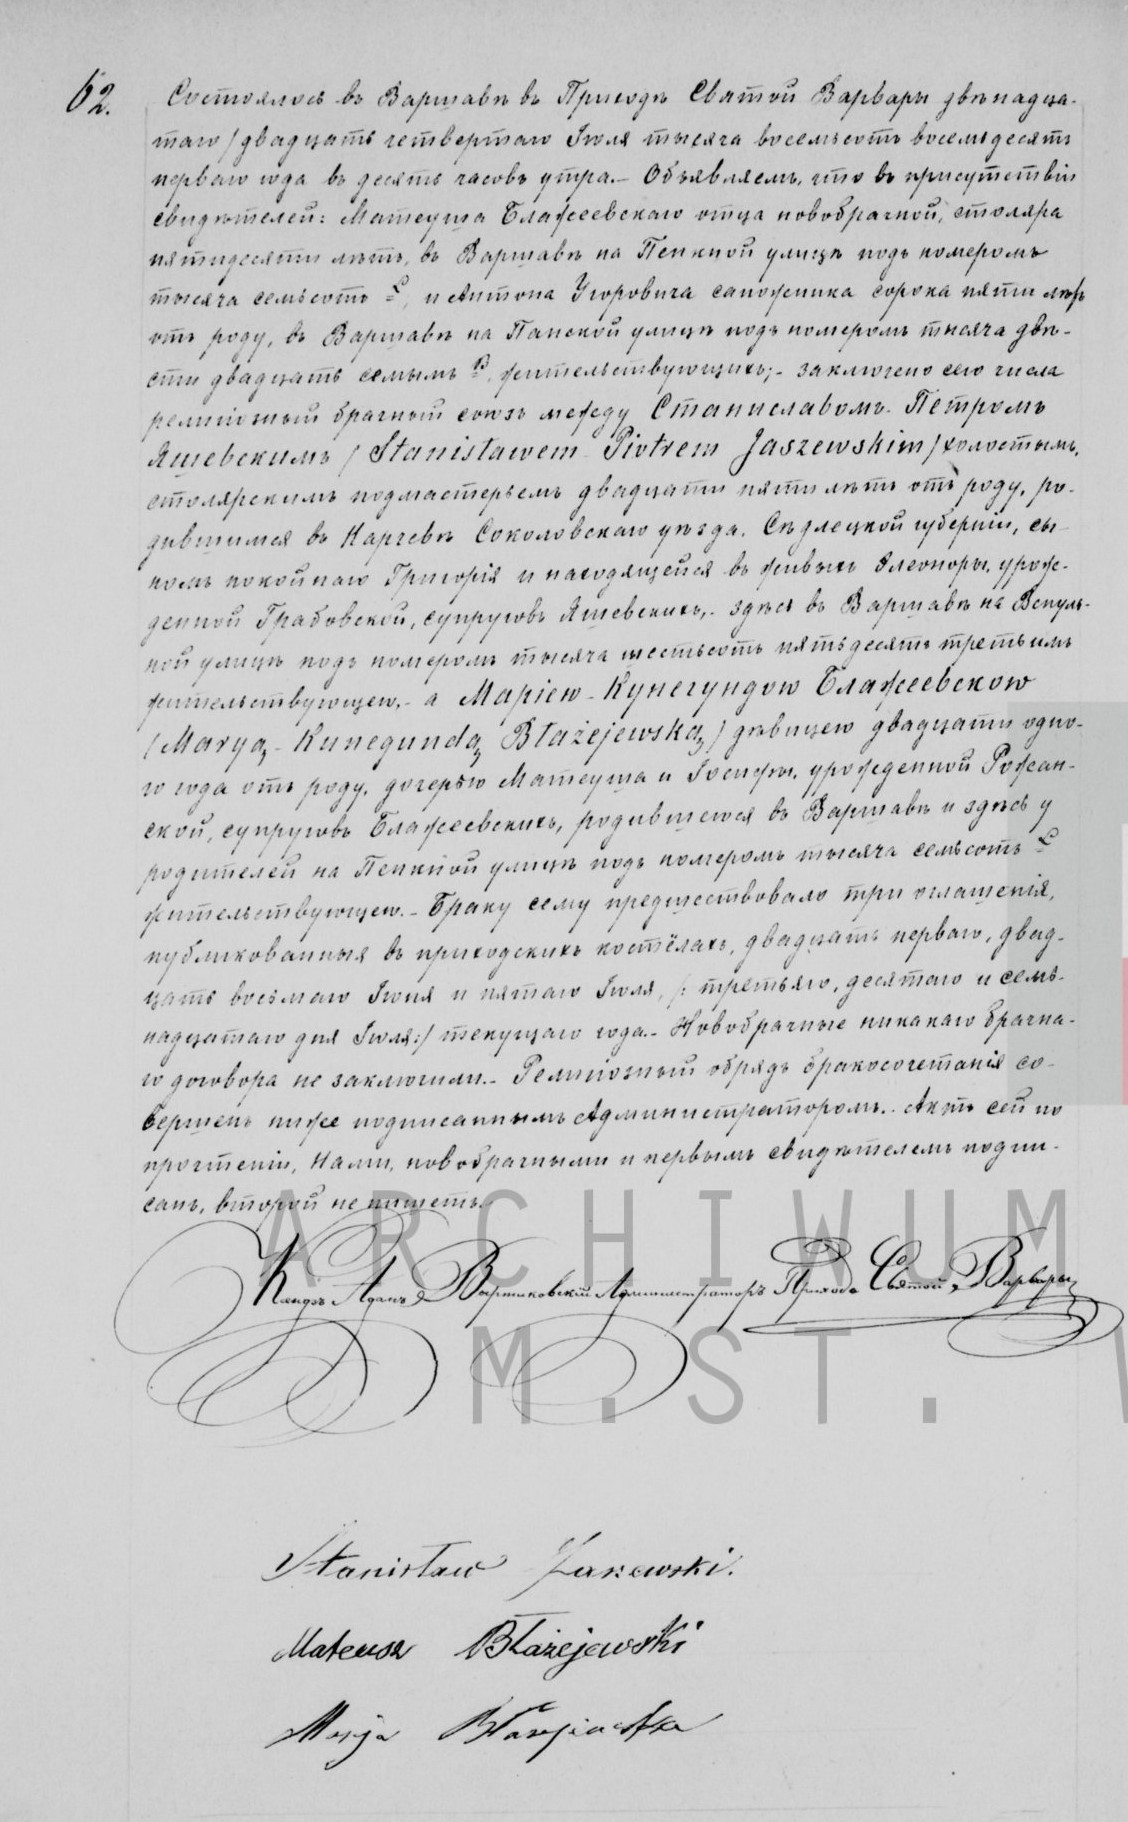 62.
Состоялось въ Варшавѣ въ Приходѣ Святой Варвары двѣнадца-
таго /двадцать четвертаго Іюля тысяча восемьсотъ восемьдесятъ
перваго года въ десять часовъ утра.- Объявляемъ, что въ присутствіи
свидѣтелей: Матеуша Блажеевскаго отца новобрачной, столяра
пятидесяти лѣтъ, въ Варшавѣ на Пенкной улицѣ подъ номеромъ
тысяча семьсотъ L, и Антона Угоровича сапожника сорока пяти лѣтъ
отъ роду, въ Варшавѣ на Панской улицѣ подъ номеромъ тысяча двѣ-
сти двадцать семымъ B, жительствующихъ;- заключено сего числа
религіозный брачный союзъ между Станиславомъ-Петромъ
Яшевскимъ /Stanisławem Piotrem Jaszewskim/ холостымъ,
столярскимъ подмастерьемъ двадцати пяти лѣтъ отъ роду, ро-
дившимся въ Карчевѣ Соколовскаго уѣзда, Сѣдлецкой губерніи, сы-
номъ покойнаго Григорія и находящейся въ живыхъ Элеоноры, урож-
денной Грабовской, супруговъ Яшевскихъ,- здѣсь въ Варшавѣ на Вспуль-
ной улицѣ подъ номеромъ тысяча шестьсотъ пятьдесятъ третьимъ
жительствующею,- а Маріею-Кунегундою Блажеевскою
/Maryą-Kunegundą Błażejewską/ дѣвицею двадцати одно-
го года отъ роду, дочерью Матеуша и Іосифы, урожденной Рожан-
ской, супруговъ Блажеевскихъ, родившеюся въ Варшавѣ и здѣсь у
родителей на Пенкной улицѣ подъ номеромъ тысяча семьсотъ L
жительствующею.- Браку сему предшествовало три оглашенія,
публикованныя въ приходскихъ костёлахъ, двадцать перваго, двад-
цать восьмаго Іюня и пятаго Іюля, /: третьяго, десятаго и семь-
надцатаго дня Іюля:/ текущаго года.- Новобрачные никакаго брачна-
го договора не заключили.- Религіозный обрядъ бракосочетанія со-
вершенъ ниже подписаннымъ Администраторомъ.- Актъ сей по
прочтеніи, Нами, новобрачными и первымъ свидѣтелемъ подпи-
санъ, второй не пишетъ.
Ксендзъ Адамъ Администраторъ Прихода Святой Варвары
ARCHIWUM
M.ST.
Stanisław Jaszewski.
Mateusz Błażejewski
Błażejewska